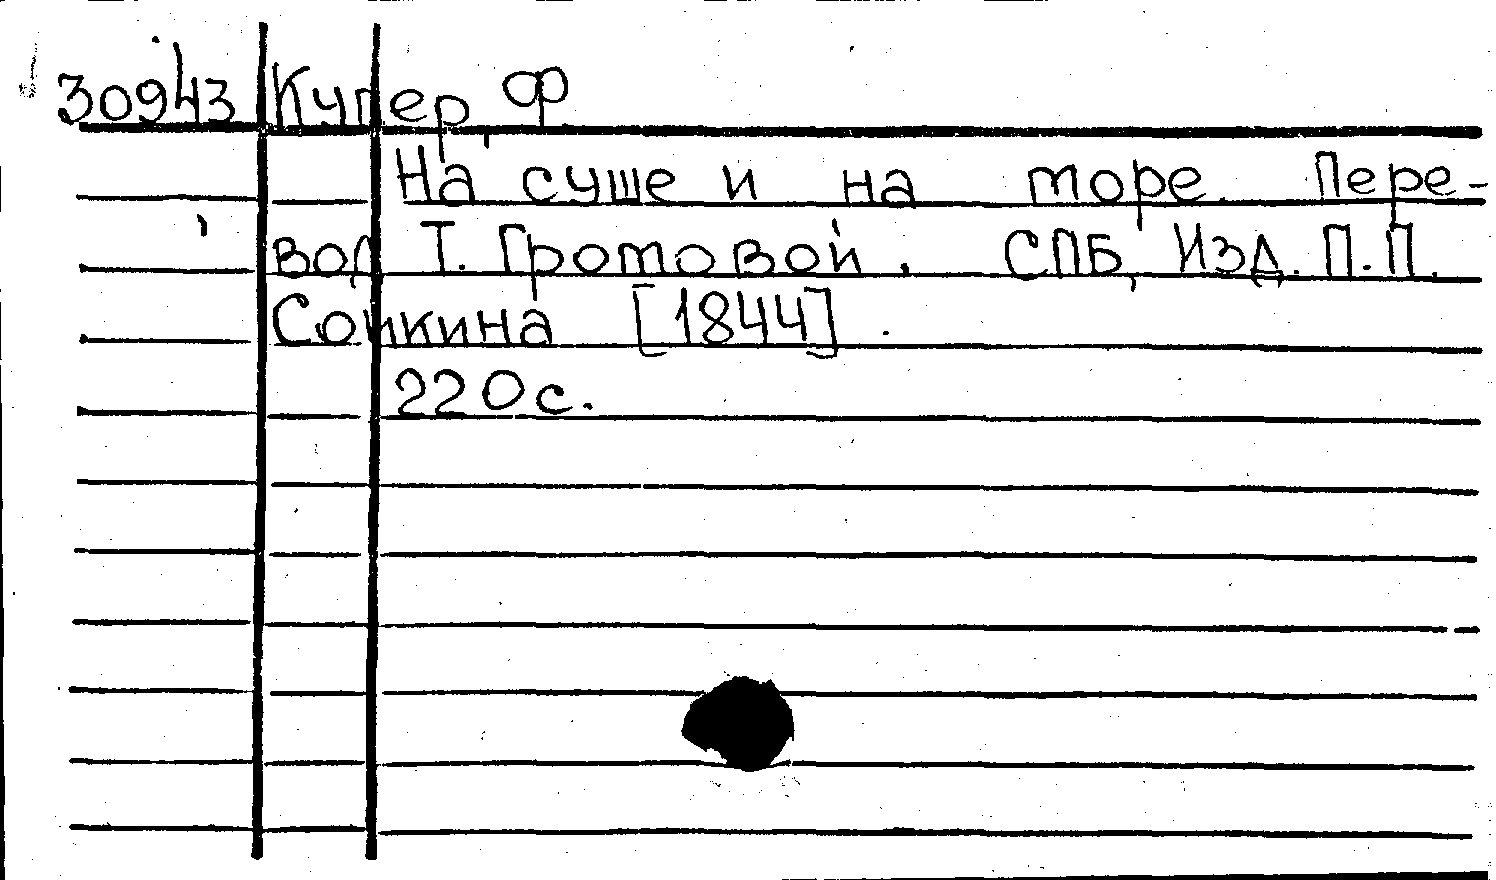 30943 Купер, Ф
На суше и на море. Пере-
вод Т. Громовой. СПБ, Изд. П.П.
Сойкина [1844].
220с.